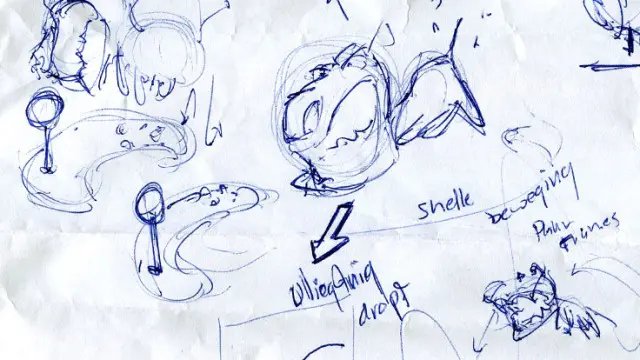 snelle
beweging
paar
frames
vliegtuig
dropt